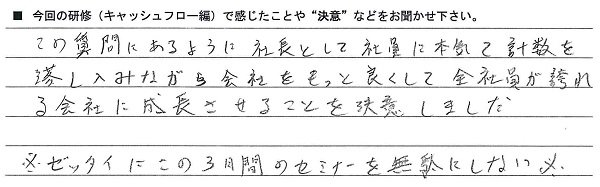 ■ 今回の研修（キャッシュフロー編）で感じたことや“決意”などをお聞かせ下さい。
この質問にあるように社長として社員に本気で計数を
落し入みながら会社をもっと良くして全社員が誇れ
る会社に成長させることを決意しました
※ゼッタイにこの3日間のセミナーを無駄にしない※